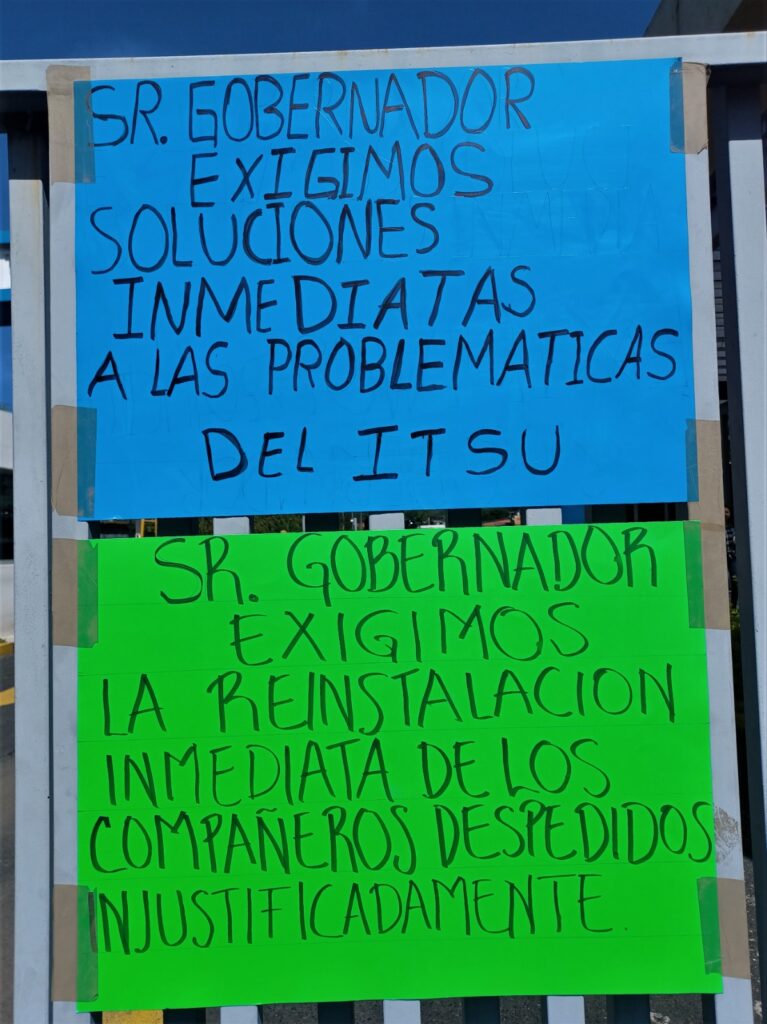 SR. GOBERNADOR
EXIGIMOS
SOLUCIONES
INMEDIATAS
A LAS PROBLEMATICAS
DEL ITSU
SR. GOBERNADOR
EXIGIMOS
LA REINSTALACION
INMEDIATA DE LOS
COMPAÑEROS DESPEDIDOS
INJUSTIFICADAMENTE.